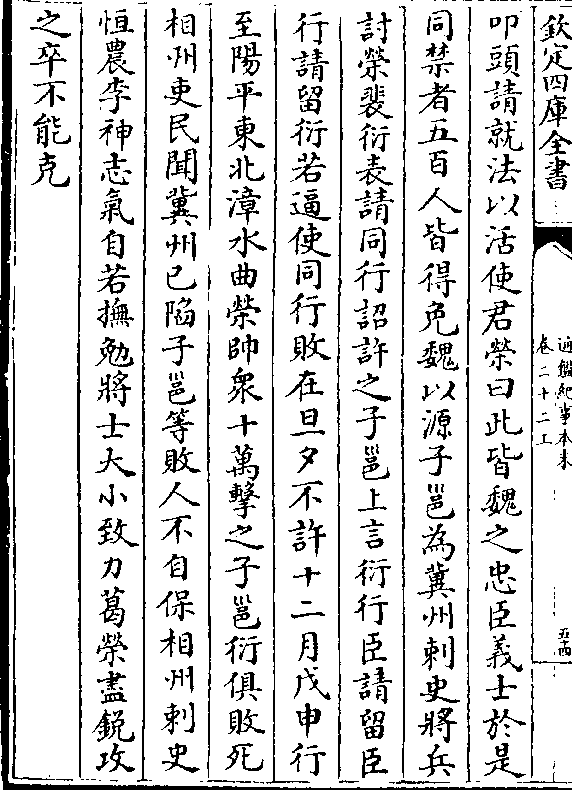 欽定四庫全書
通鑑紀事本末
卷二十二上
五十四
叩頭請就法以活使君榮曰此皆魏之忠臣義士於是
同禁者五百人皆得免魏以源子邕為冀州刺史將兵
討榮裴衍表請同行詔許之子邕上言衍行臣請留臣
行請留衍若逼使同行敗在旦夕不許十二月戊申行
至陽平東北漳水曲榮帥衆十萬擊之子邕衍俱敗死
相州吏民聞冀州已陷子邕等敗人不自保相州刺史
恒農李神志氣自若撫勉將士大小致力葛榮盡鋭攻
之卒不能克